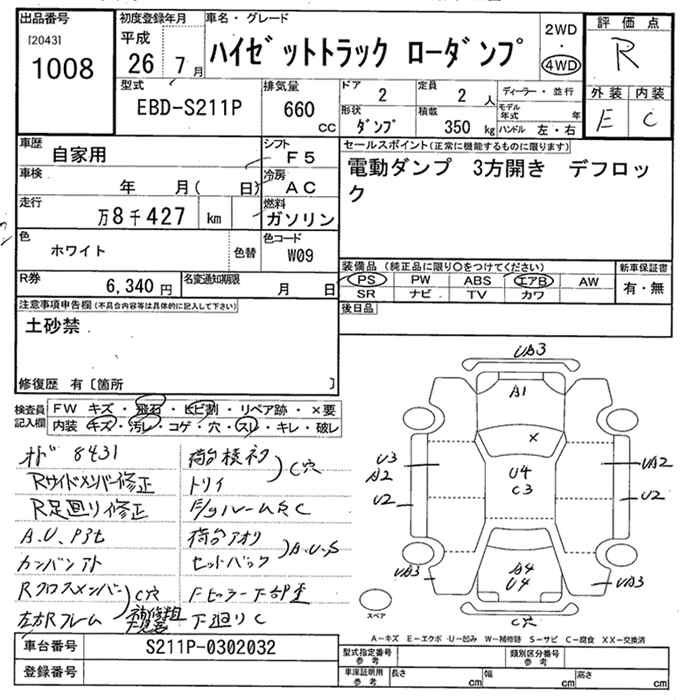 出品番号
[2043]
1008
初度登録年月
平成
26 7月
車名・グレード
ハイゼットトラック ローダンプ
2WD
・
4WD
評価点
R
外装 内装
E C
型式
EBD-S211P
排気量
660 cc
ドア
2
定員
2 人
形状
ダンプ
積載
350 kg
ディーラー・並行
モデル年式 年
ハンドル 左・右
車歴
自家用
シフト
F5
車検
年 月( 日)
冷房
AC
走行
万8千427 km
燃料
ガソリン
色
ホワイト
色替
色コード
W09
R券
6,340円
名変通知期限
月 日
セールスポイント(正常に機能するものに限ります)
電動ダンプ 3方開き デフロッ
ク
装備品(純正品に限り○をつけてください)
PS PW ABS エアB AW
SR ナビ TV カワ
新車保証書
有・無
後日品
注意事項申告欄(不具合内容等は具体的に記入して下さい)
土砂禁
修復歴 有〔箇所 〕
検査員
記入欄
FW キズ・飛石・ヒビ割・リペア跡・×要
内装・キズ・汚レ・コゲ・穴・スレ・キレ・破レ
8431
Rサイドメンバー修正
R足廻り修正
カンバンアト
Rクロスメンバー
左右Rフレーム
C穴
トリイ
C穴
荷台アオリ
セットバック
A.U.S
下廻りC
UA3
A1
×
U4
C3
U3
A2
U2
UA2
U2
UA3
A4
U4
UA3
C穴
スペア
A−キズ E−エクボ U−凹み W−補修跡 S−サビ C−腐食 XX−交換済
車台番号
S211P-0302032
登録番号
型式指定番号
参考
類別区分番号
参考
車庫証明用
参考
長さ cm
幅 cm
高さ cm